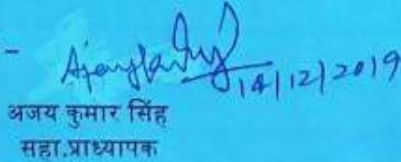 -
14/12/2019
अजय कुमार सिंह
सहा.प्राध्यापक